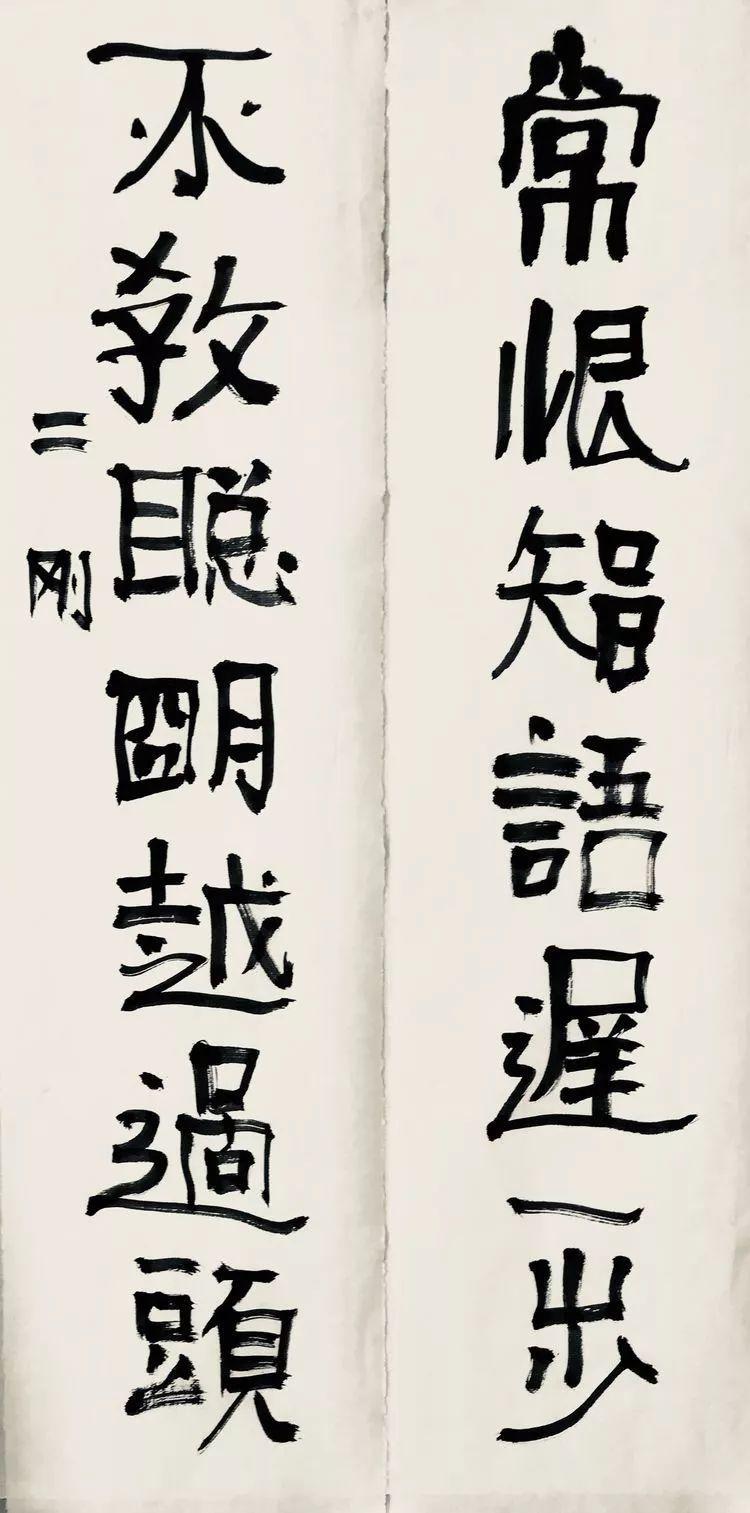 常恨智語遲一步
不教聰明越過頭
二刚